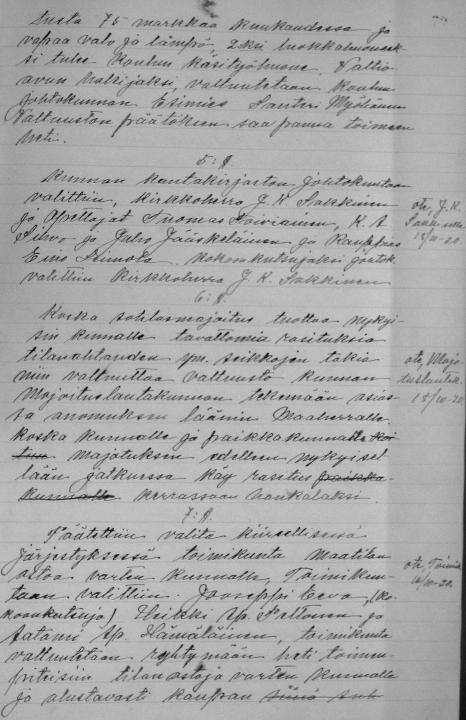 tusta 75 markkaa kuukaudessa ja
vapaa valo ja lämpö, 2ksi luokkahuoneek-
si tulee koulun käsityöhuone. Valtio
avun hakijaksi, valtuutetaan koulun
johtokunnan Esimies Santeri Myöhänen
Valtuuston päätöksen saa panna toimeen
heti.
5:§.
Kunnan kantakirjaston johtokuntaan
valittiin, kirkkoherra J. K. Sakkinen
ja Opettajat Tuomas Toiviainen, K. A.
ja Juho Jääskeläinen ja Kauppias
Eino Himola. kokoonkutsujaksi
valittiin Kirkkoherra J. K. Sakkinen
ote, J. K.
Sakkiselle
18/III-20.
6:§.
Koska sotilasmajoitus tuottaa nyky-
sin kunnalle tavattomia rasituksia
tilanahtauden ym. seikkojen takia
niin valtuuttaa valtuusto kunnan
Majoituslautakunnan tekemään asias-
ta anomuksen läänin Maaherralle.
koska kunnalle ja paikkakunnalle
majoituksen edelleen nykyisel
lään jatkuessa käy rasitus paikka-
kunnalle kerrassaan hankalaksi.
ote, Majo-
tuslautak.
18/III-20
7:§.
Päätettiin valita kiireellisessä
järjestyksessä toimikunta Maatilan
ostoa varten kunnalle, Toimikun-
taan valittiin: Jooseppi Eeva, (ko-
koonkutsuja) Heikki Ap. Peltonen ja
Aatami Ap. Hämäläinen, toimikunta
valtuutetaan ryhtymään heti toimen-
piteisiin tilan ostoja varten kunnalle
ja alustavasti kaupan
ote, Toimi
18/III-20.